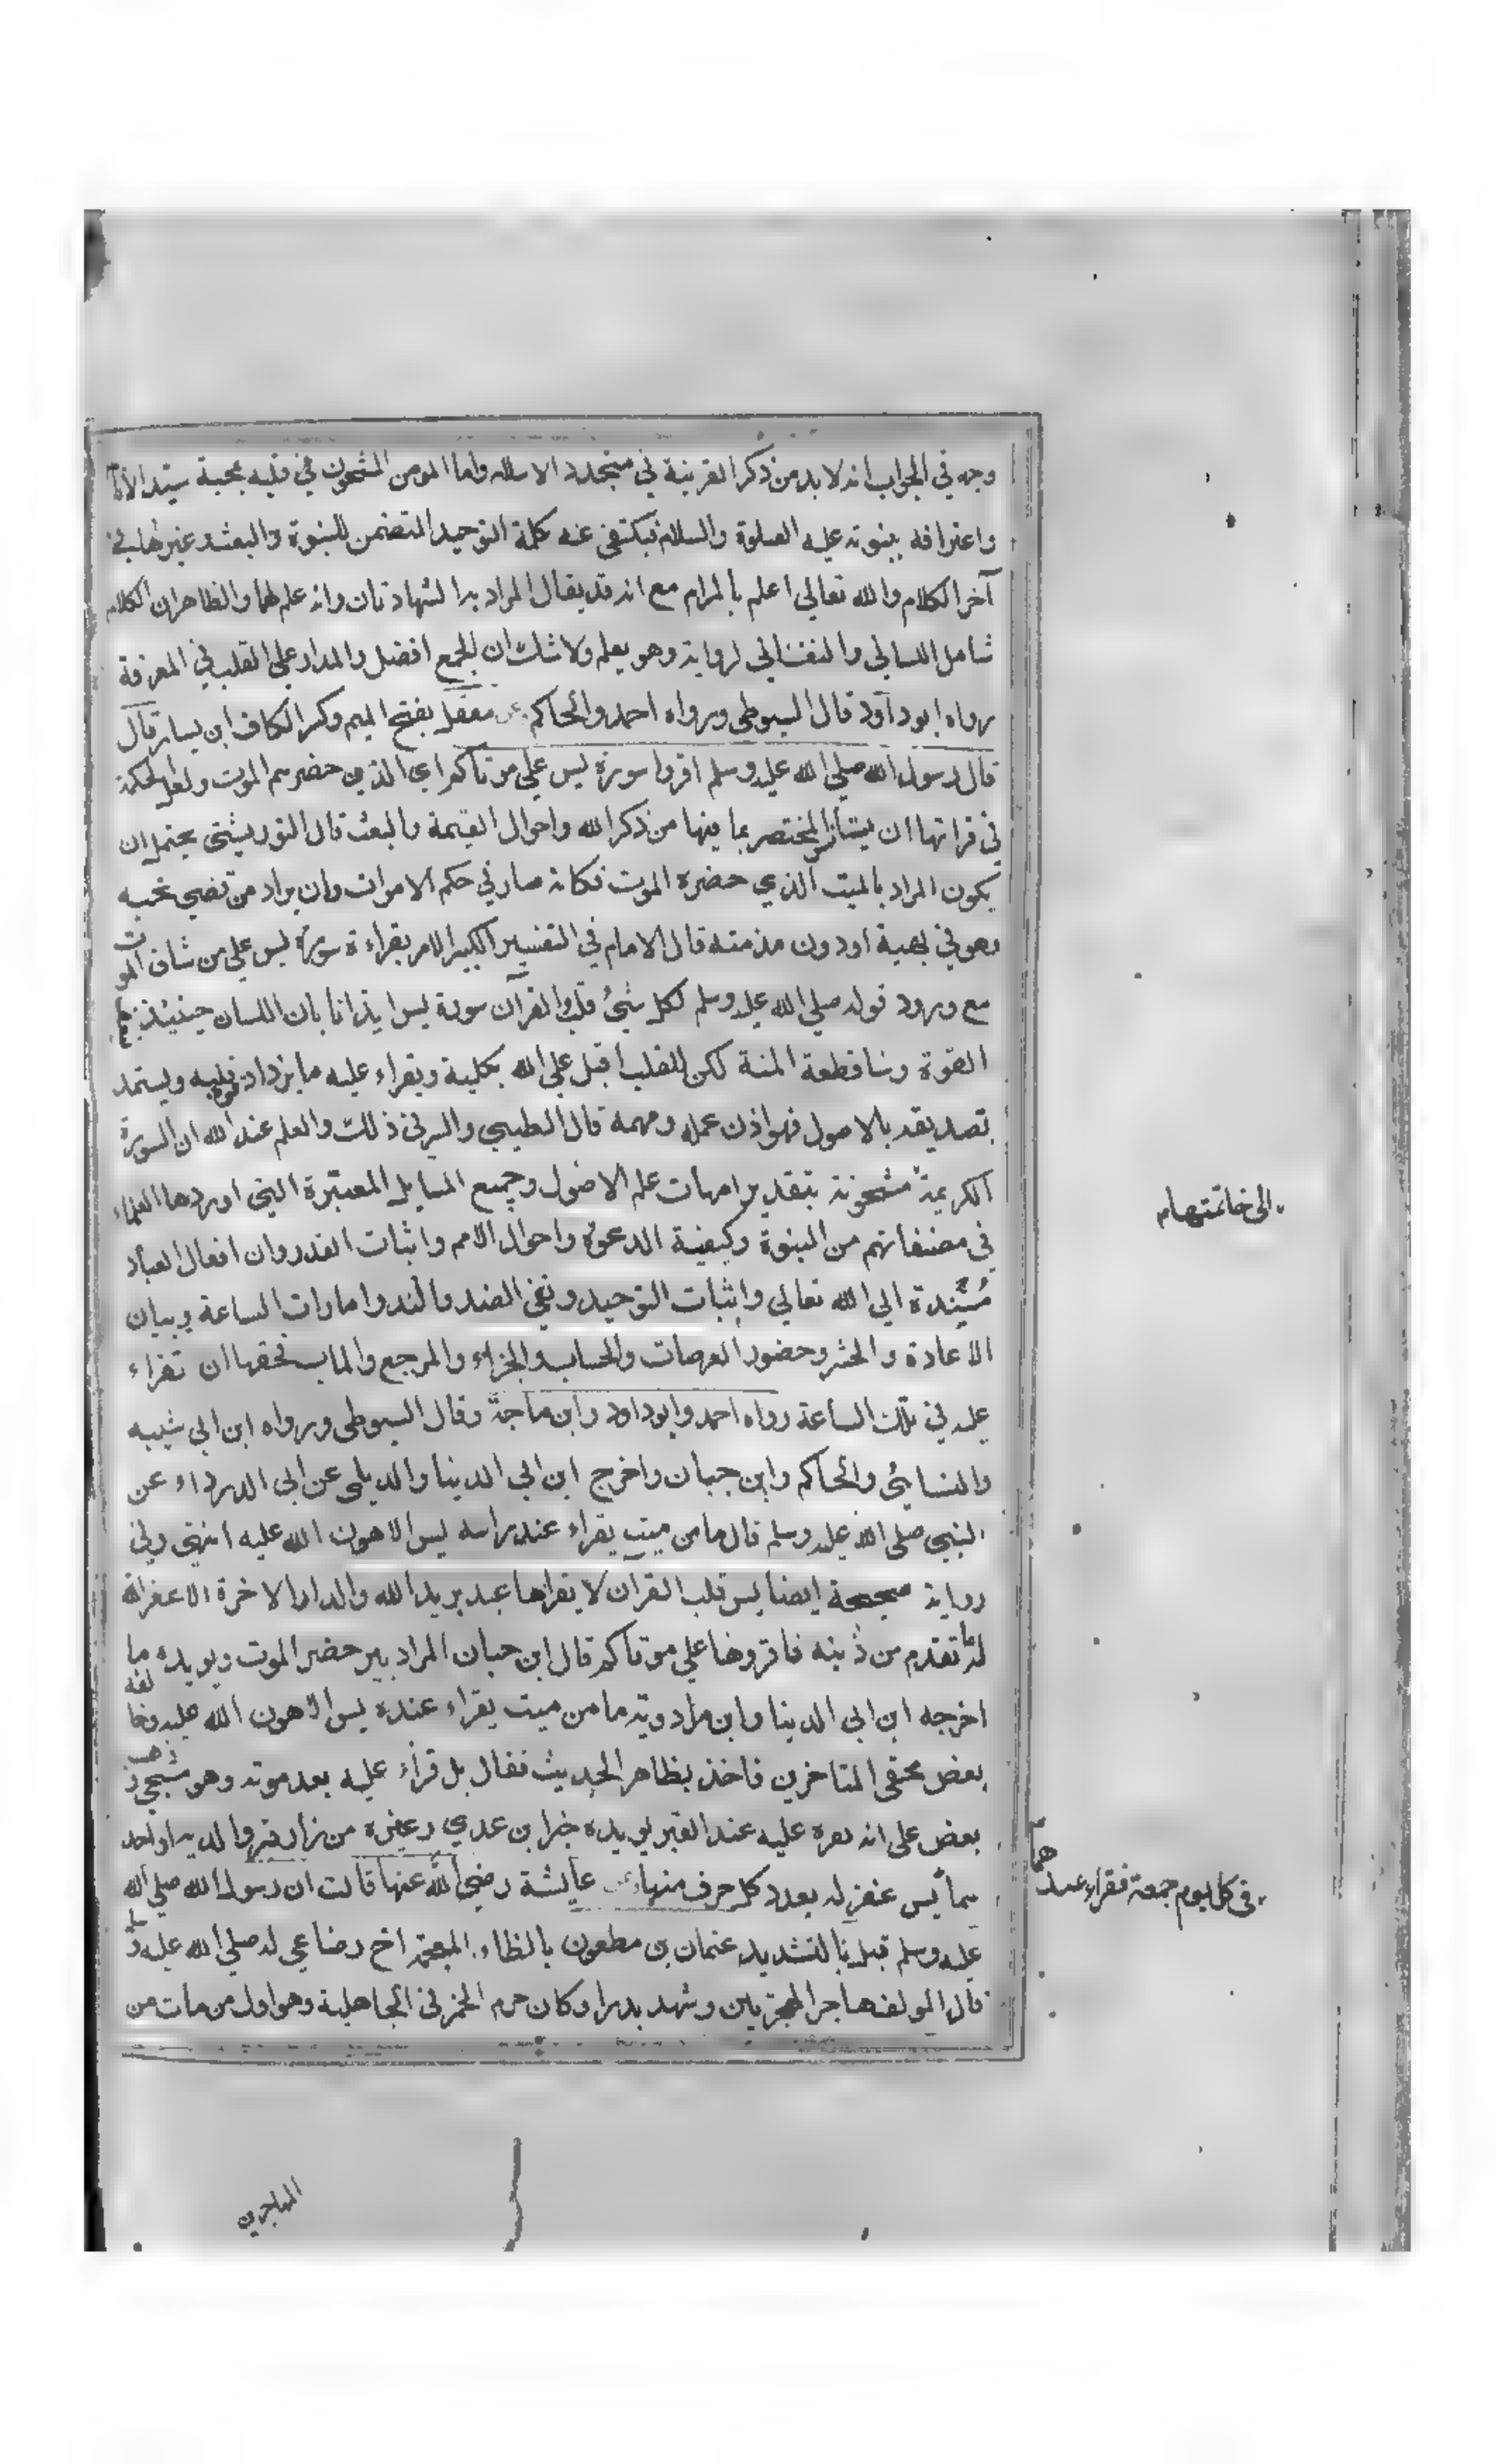 وجه في الجواب انه لا بد من ذكر القرينة في متجدد الاسلام واما المومن المشحون في قلبه محبة سيد الانام
واعترافه بنبوته عليه الصلوة والسلام فيكتفى عنه كلمة التوحيد المتضمن للنبوة والبعث وغيرهما في
آخر الكلام والله تعالي اعلم بالمرام مع انه قد يقال المراد به الشهادتان وانه علم لهما والظاهر ان الكلام
شامل اللساني والنفساني لرواية وهو يعلم ولا شك ان الجمع افضل والمدار على القلب في المعرفة
رواه ابوداود قال السيوطي ورواه احمد والحاكم عن معقل بفتح الميم وكسر الكاف ابن يسار قال
قال رسول الله صلي الله عليه وسلم اقروا سورة يس علي موتاكم اي الذين حضرهم الموت ولعل الحكمة
في قراتها ان يستأنس المحتضر بما فيها من ذكر الله واحوال القيمة والبعث قال التوربشتي يحتمل ان
يكون المراد بالميت الذي حضره الموت فكانه صار في حكم الاموات وان يراد من قضي نحبه
وهو في بيته او دون مدفنه قال الامام في التفسير الكبير الامر بقراءة سورة يس علي من شاف الموت
مع ورود قوله صلي الله عليه وسلم لكل شئ قلب والقرآن سورة يس ايذانا بان اللسان حينئذ ضعيف
القوة وساقطة المنة لكن القلب اقبل علي الله بكلية ويقراء عليه ما يزداد قوة قلبه ويستمد
تصديقه بالاصول فهو اذن عمله ومهمه قال الطيبي والسر في ذلك والعلم عند الله ان السورة
الكريمة مشحونة بتقدير امهات علم الاصول وجميع المسايل المعتبرة التي اوردها العلماء
الى خاتمتها م
في مصنفاتهم من النبوة وكيفية الدعوة واحوال الامم واثبات القدر وان افعال العباد
مستندة الي الله تعالي واثبات التوحيد ونفي الضد والند وامارات الساعة وبيان
الاعادة والحشر وحضور العرصات والحساب والجزاء والمرجع والماب فحقها ان تقراء
عليه في تلك الساعة رواه احمد وابوداود وابن ماجة وقال السيوطي ورواه ابن ابي شيبه
والنسائي والحاكم وابن حبان واخرج ابن ابي الدنيا والديلمي عن ابي الدرداء عن
النبي صلي الله عليه وسلم قال ما من ميت يقراء عند راسه يس الا هون الله عليه انتهي وفي
رواية صحيحة ايضا يس قلب القران لا يقراها عبد يريد الله والدار الاخرة الا غفر الله
له ما تقدم من ذنبه فاقروها علي موتاكم قال ابن حبان المراد به من حضر الموت ويويده ما
اخرجه ابن ابي الدنيا وابن مردويه ما من ميت يقراء عنده يس الا هون الله عليه وخالفه
بعض محققي المتاخرين فاخذ بظاهر الحديث فقال بل قراء عليه بعد موته وهو مسجى وذهب
بعض على انه يقرء عليه عند القبر يويده خبر ابن عدي وغيره من زار قبر والديه او احدهما
في كل يوم جمعة فقراء عند
هما يس غفر له بعدد كل حرف منها وعن عايشة رضي الله عنها قالت ان رسول الله صلي الله
عليه وسلم قبل بالتشديد عثمان بن مظعون بالظاء المعجمة اخ رضاعي له صلي الله عليه وسلم
قال المولف هاجر الهجرتين وشهد بدرا وكان حرم الخمر في الجاهلية وهو اول من مات من
المهاجرين